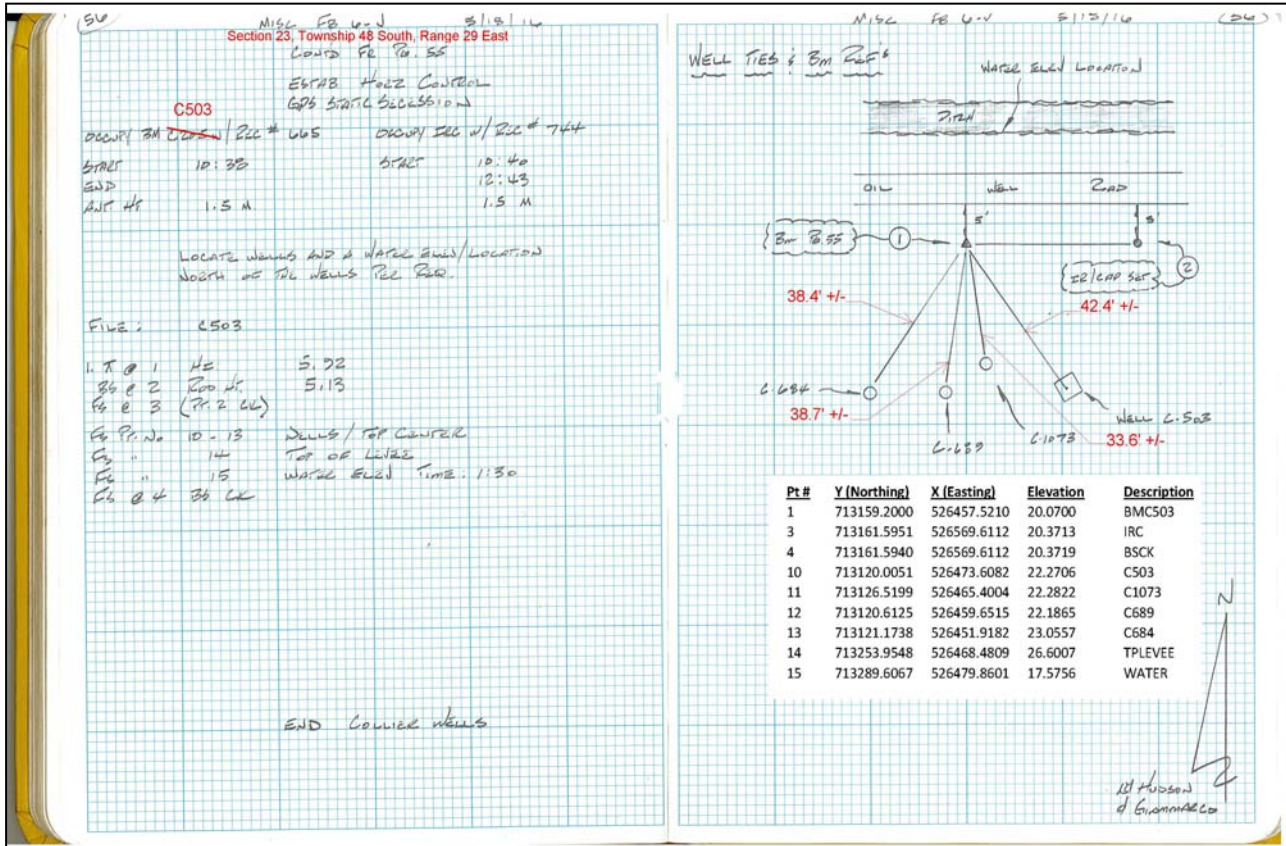 56 MISC FB 6-J 5/13/16
Section 23, Township 48 South, Range 29 East
CONTD FR PG. 55
ESTAB HORZ CONTROL
GPS STATIC SECESSION
C503
OCCUPY BM W/ REC # 665 OCCUPY IRC W/ REC # 744
START 10:38 START 10:40
END 12:43
ANT HT 1.5 M 1.5 M
LOCATE WELLS AND A WATER ELEV/LOCATION
NORTH OF THE WELLS PER REQ.
FILE: C503
π @ 1 HI 5.92
BS @ 2 ROD HT. 5.13
FS @ 3 (PT. 2 CK)
FS PT. NO 10 - 13 WELLS / TOP CENTER
FS " 14 TOP OF LEVEE
FS " 15 WATER ELEV TIME: 1:30
FS @ 4 BS CK
END COLLIER WELLS
MISC FB 6-J 5/13/16 (56)
WELL TIES & BM REF'S
WATER ELEV LOCATION
DITCH
OIL WELL ROAD
5' 5'
BM PG. 55 1
IR/CAP SET 2
38.4' +/-
42.4' +/-
C-684
38.7' +/-
WELL C-503
C-689
C-1073
33.6' +/-
Pt # Y (Northing) X (Easting) Elevation Description
1 713159.2000 526457.5210 20.0700 BMC503
3 713161.5951 526569.6112 20.3713 IRC
4 713161.5940 526569.6112 20.3719 BSCK
10 713120.0051 526473.6082 22.2706 C503
11 713126.5199 526465.4004 22.2822 C1073
12 713120.6125 526459.6515 22.1865 C689
13 713121.1738 526451.9182 23.0557 C684
14 713253.9548 526468.4809 26.6007 TPLEVEE
15 713289.6067 526479.8601 17.5756 WATER
N
M HUDSON
d GIAMMARCO